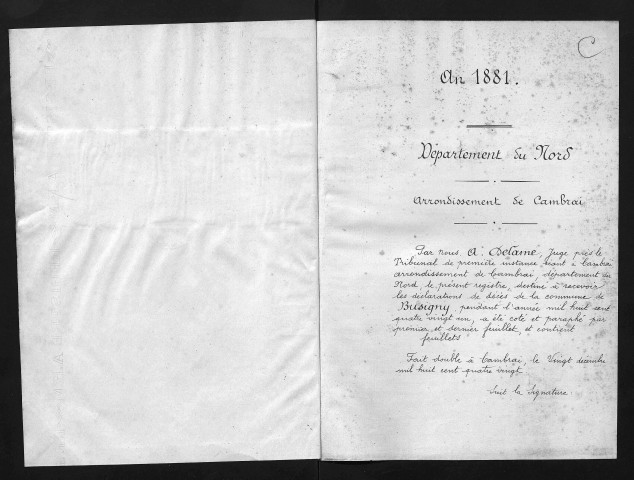 C
An 1881.
Département du Nord
Arrondissement de Cambrai
Par nous, A. Delamé, Juge près le
Tribunal de première instance séant à Cambrai
arrondissement de Cambrai, département du
Nord, le présent registre, destiné à recevoir
les déclarations de décès de la commune de
Busigny, pendant l'année mil huit cent
quatre vingt un, a été coté et paraphé par
premier et dernier feuillet, et contient
feuillets
Fait double à Cambrai, le Vingt décembre
mil huit cent quatre vingt
Suit la Signature.